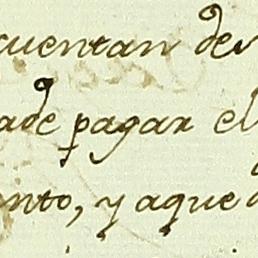 cuentan de
ade pagar el
nto, y aque